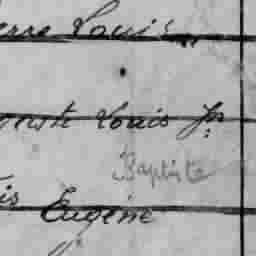 erre Louis
gust Louis Jr
Baptiste
is Eugène